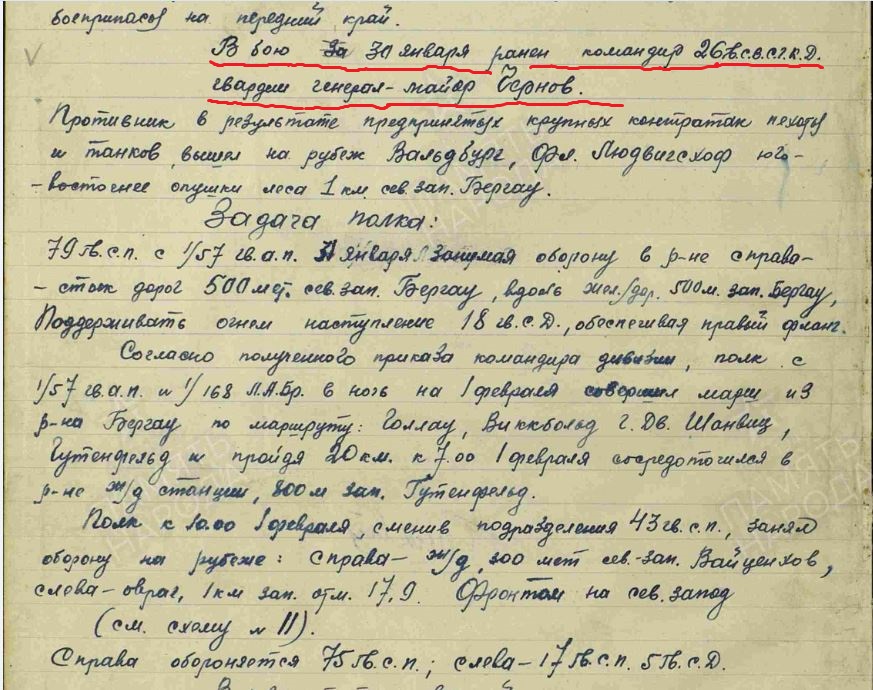 боеприпасов на передний край.
В бою за 30 января ранен командир 26гв.с.в.сг.к.д.
гвардии генерал-майор Чернов.
Противник в результате предпринятых крупных контратак пехоты
и танков, вышел на рубеж Вальдбург, Фл. Людвигсхоф юго-
-восточнее опушки леса 1 км сев. зап. Бергау.
Задача полка:
79гв.с.п. с 1/57 гв.а.п. января занимая оборону в р-не справа-
-стык дорог 500 мет. сев. зап. Бергау, вдоль жел./дор. 500м. зап. Бергау,
Поддерживать огнем наступление 18 гв.с.д., обеспечивая правый фланг.
Согласно полученного приказа командира дивизии, полк с
1/57 гв.а.п. и 1/168 Л.А.Бр. в ночь на 1 февраля совершил марш из
р-на Бергау по маршруту: Голлау, Виккбольд г. Дв. Шанвиц,
Гутенфельд и пройдя 20 км. к 7.00 1 февраля сосредоточился в
р-не ж/д станции, 800м зап. Гутенфельд.
Полк к 10.00 1 февраля, сменив подразделения 43 гв.с.п., занял
оборону на рубеже: справа- ж/д, 300 мет сев.-зап. Вайценхов,
слева-овраг, 1 км зап. отм. 17,9. Фронтом на сев. запад
(см. схему № 11).
Справа обороняется 75гв.с.п.; слева-17гв.с.п. 5гв.с.д.